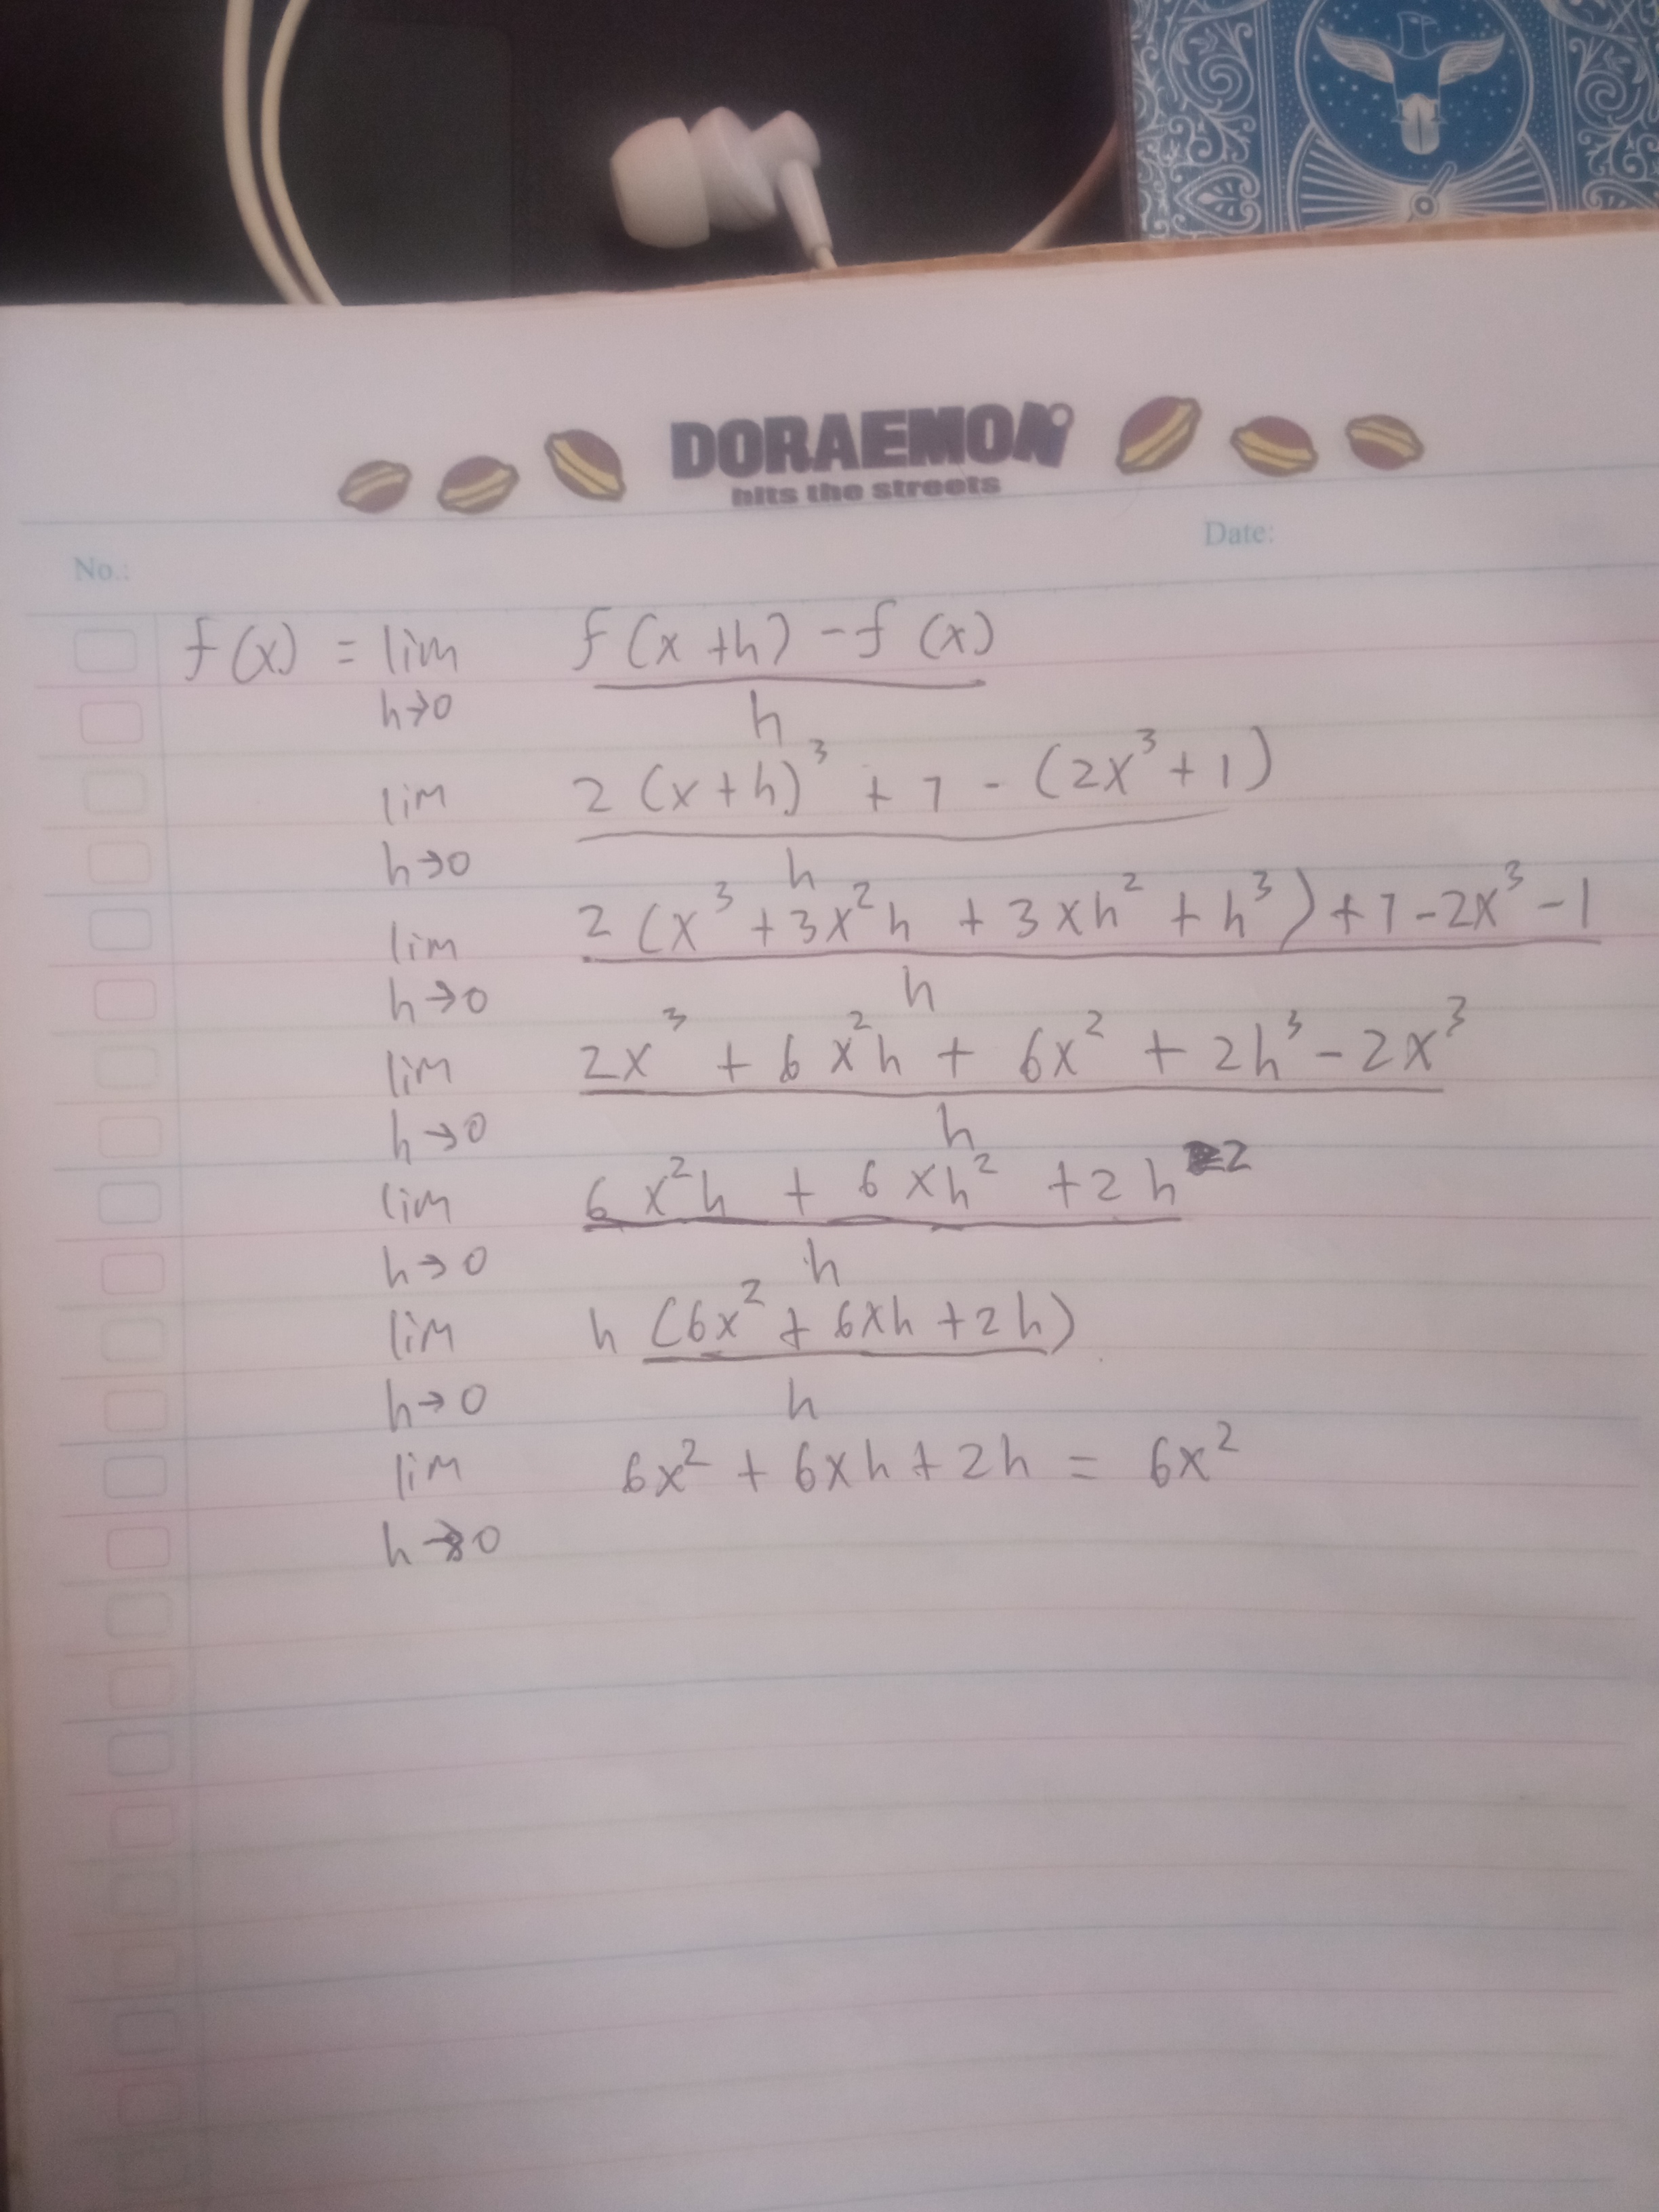 DORAEMON
hits the streets
No.:
Date:
f(x) = lim h→0 f(x+h) - f(x) / h
lim h→0 2(x+h)³ + 1 - (2x³ + 1) / h
lim h→0 2(x³ + 3x²h + 3xh² + h³) + 1 - 2x³ - 1 / h
lim h→0 2x³ + 6x²h + 6x² + 2h³ - 2x³ / h
lim h→0 6x²h + 6xh² + 2h² / h
lim h→0 h(6x² + 6xh + 2h) / h
lim h→0 6x² + 6xh + 2h = 6x²